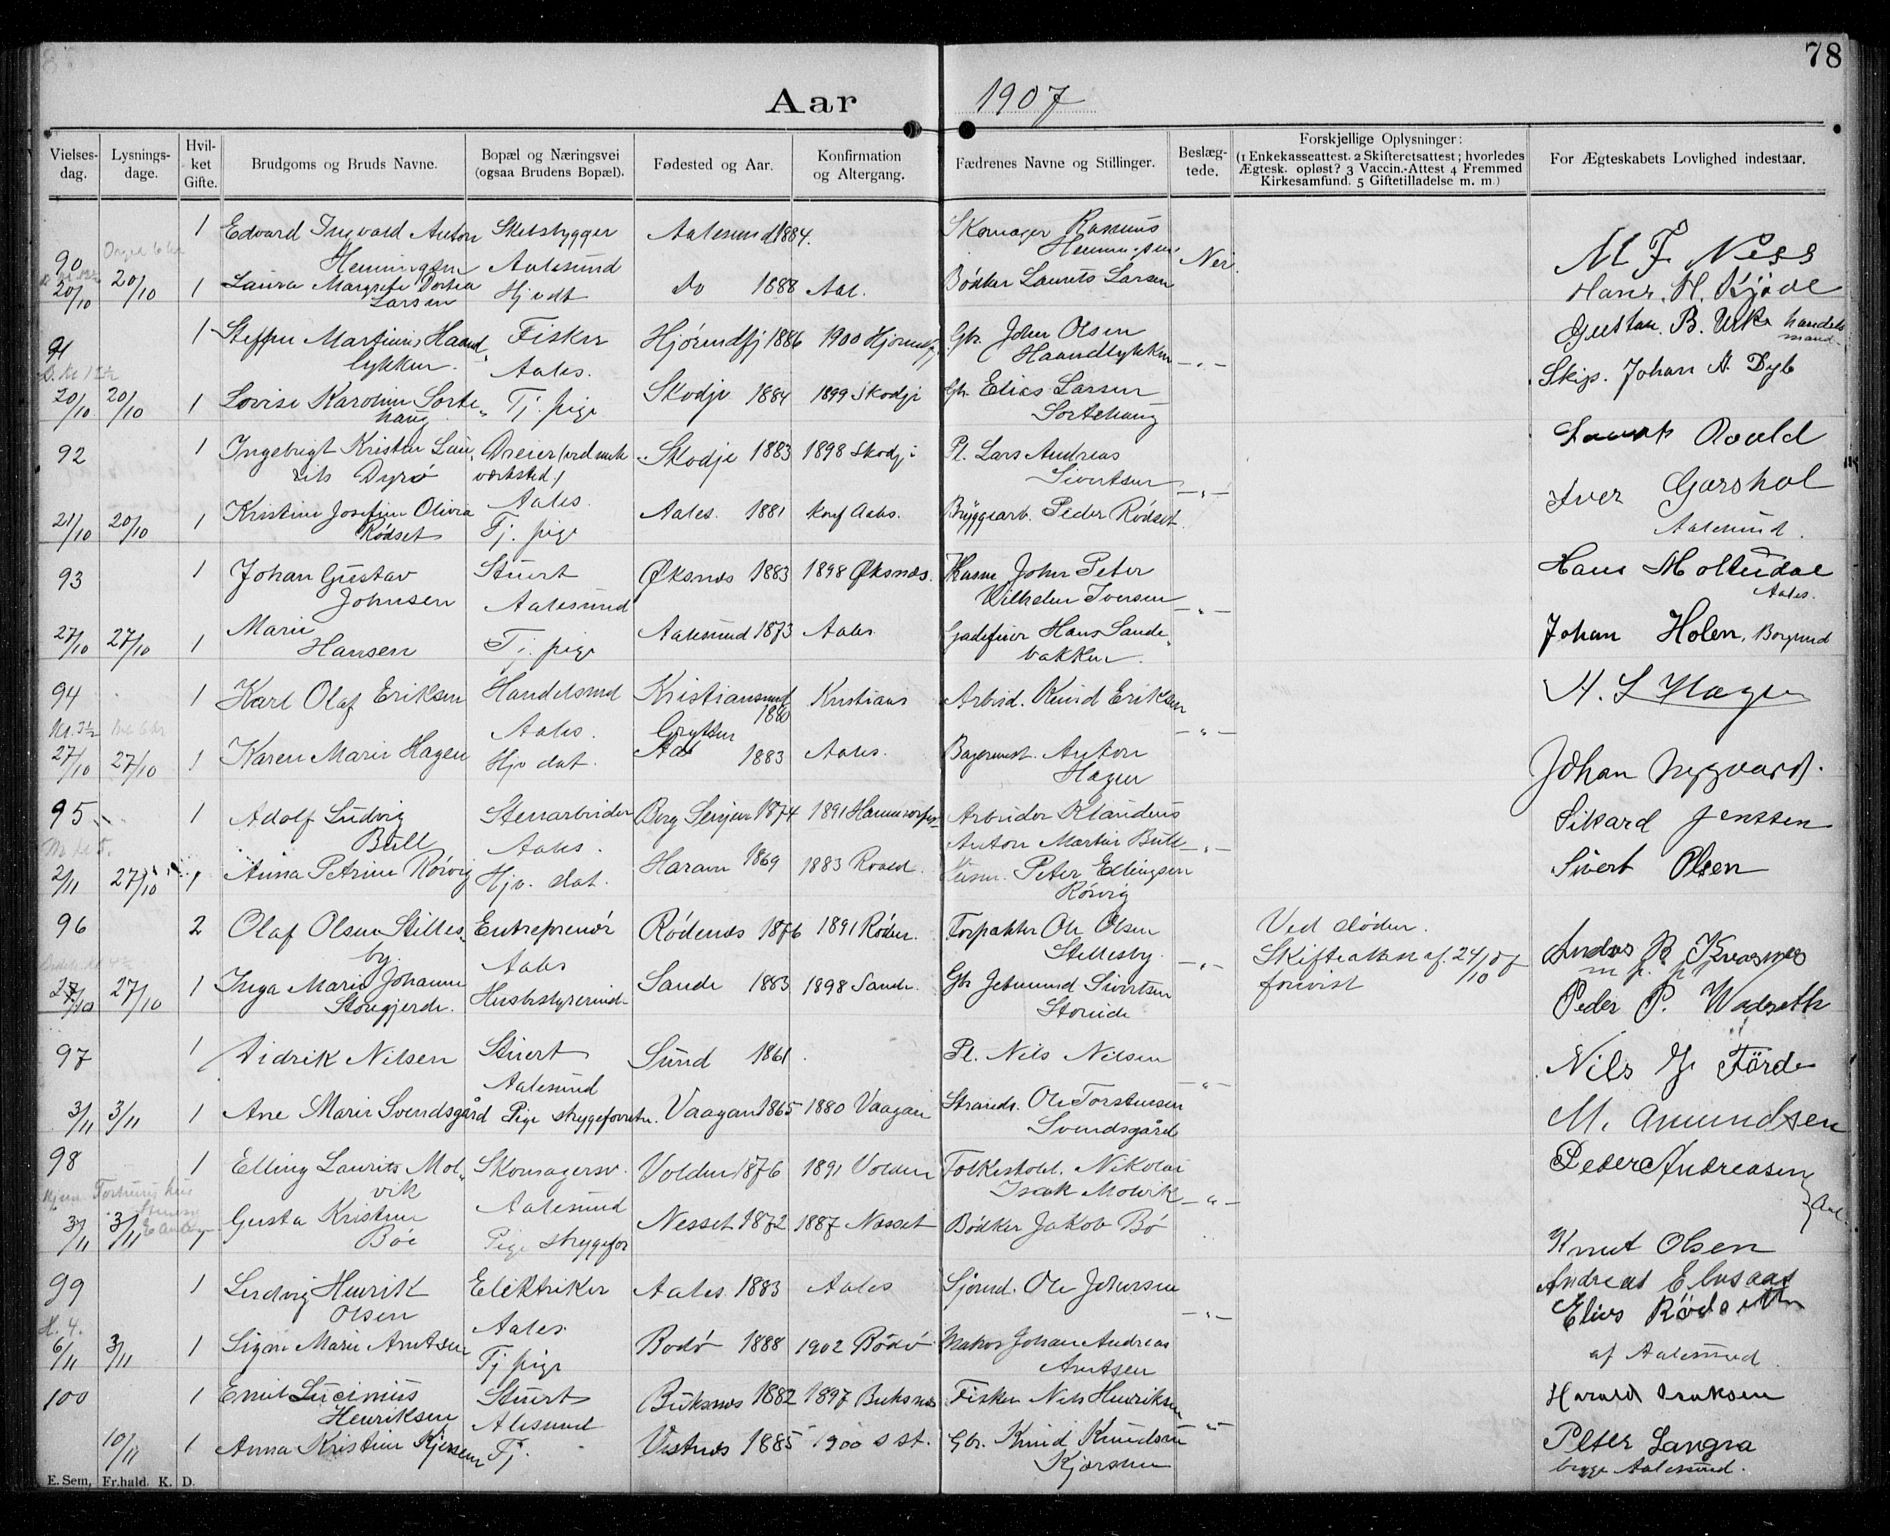 78
Aar 1907
Vielses-dag. Lysnings-dage. Hvil-ket Gifte. Brudgoms og Bruds Navne. Bopæl og Næringsvei (ogsaa Brudens Bopæl). Fødested og Aar. Konfirmation og Altergang. Fædrenes Navne og Stillinger. Beslæg-tede. Forskjellige Oplysninger: (1 Enkekasseattest. 2 Skifteretsattest; hvorledes Ægtesk. opløst? 3 Vaccin.-Attest 4 Fremmed Kirkesamfund. 5 Giftetilladelse m. m.) For Ægteskabets Lovlighed indestaar.
90 1 Edvard Ingvald Anton Skibsbygger Aalesund 1884. Skomager Rasmus
Henningsen Aalesund Henningsen Nei. M F Ness
20/10 20/10 1 Laura Margrete Dortea Hjvdt Do 1888 Aal. Bødker Laurits Larsen Hans. H. Kjøde
Larsen
91 1 Steffen Martinus Haand- Fisker Hjørundfj 1886 1900 Hjørundfj Gbr. John Olsen Gustav. B. Urke handels
lykken. Aales. Haandlykken mand
20/10 20/10 1 Lovise Karoline Sorte- Tj. pige Skodje 1884 1899 Skodje Gbr. Elias Larsen Skip. Johan A. Dyb
haug Sortehaug
92 1 Ingebrigt Kristian Lau- Dreier (ved mek Skodje 1883 1898 Skodje Pl. Lars Andreas Roald
rits Dyrø værksted) Sivertsen
Aales. Iver Garshol
21/10 20/10 1 Kristine Josefine Olivia Tj. pige Aales. 1881 konf Aales. Bryggearb. Peder Rødset Aalesund.
Rødset
93 1 Johan Gustav Stuert Øksnæs 1883 1898 Øksnæs. Husm John Peter Hans Moltudal
Johnsen Aalesund Vilhelm Iversen Aales.
27/10 27/10 1 Marie Tj. pige Aalesund 1873 Aales. Gadefeier Hans Sande- Johan Holen, Borgund
Hansen bakken.
94 1 Karl Olaf Eriksen Handelsmd Kristiansund 1880 Kristians Arbeid. Knud Eriksen A. L Hagen
Aales. Grytten
27/10 27/10 1 Karen Marie Hagen Hjv dat. Aal 1883 Aales. Bagermest. Anton Johan Nygaard.
Hagen
95 1 Adolf Ludvig Stenarbeider Berg Senjen 1874 1891 Hammerfest Arbeider Klaudius Sikard Jenssen
Bull Aales. Anton Martin Bull
2/11 27/10 1 Anna Petrine Rørvig Hjv. dat. Haram 1869 1883 Roald. Husm. Peter Ellingsen Sivert Olsen
Rørvig
96 2 Olaf Olsen Stilles- Entreprenør Rødenæs 1876 1891 Røden. Forpakter Ole Olsen Ved døden.
by. Aales Stillesby. Skifteattest af. 24/10 07 m. p. p.
27/10 27/10 1 Inga Marie Johanne Husbstyrerinde Sande 1883 1898 Sande. Gbr Jetmund Sivertsen forevist Peder P. Wadseth
Storegjerde. Storeide
97 1 Didrik Nilsen Stuert Sund 1861. Pl. Nils Nilsen Nils J. Förde
Aalesund
3/11 3/11 1 Ane Marie Svendsgård Pige strygeforretn. Vaagan 1865 1880 Vaagan Strands. Ole Torstensen M. Amundsen
Svendsgård
98 1 Elling Laurits Mol- Skomagersv. Volden 1876 1891 Volden Folkeskol. Nikolai Peder Andreasen
vik Aalesund Isak Molvik Aal.
3/11 3/11 1 Gusta Kristine Pige strygefor Nesset 1872 1887 Nesset Bødker Jakob Bø Knut Olsen
Böe
99 1 Ludvig Henrik Elektriker Aales. 1883 Aales Sjømd. Ole Johansen
Olsen Aales. Elias Rödseth
6/11 3/11 1 Signe Marie Arntsen Tj pige Bodø 1888 1902 Bodø Johan Andreas af Aalesund.
Arntsen
100 1 Emil Lucinius Stuert Buksnæs 1882 1897 Buksnæs Fisker Nils Henriksen Harald Isaksen
Henriksen Alesund
10/11 1 Anna Kristine Kjersem Tj. Vestnæs 1885 1900 s st. Gbr. Knud Knudsen Peter Langva
Kjærsem begge Aalesund.
E. Sem, Fr.hald. K. D.